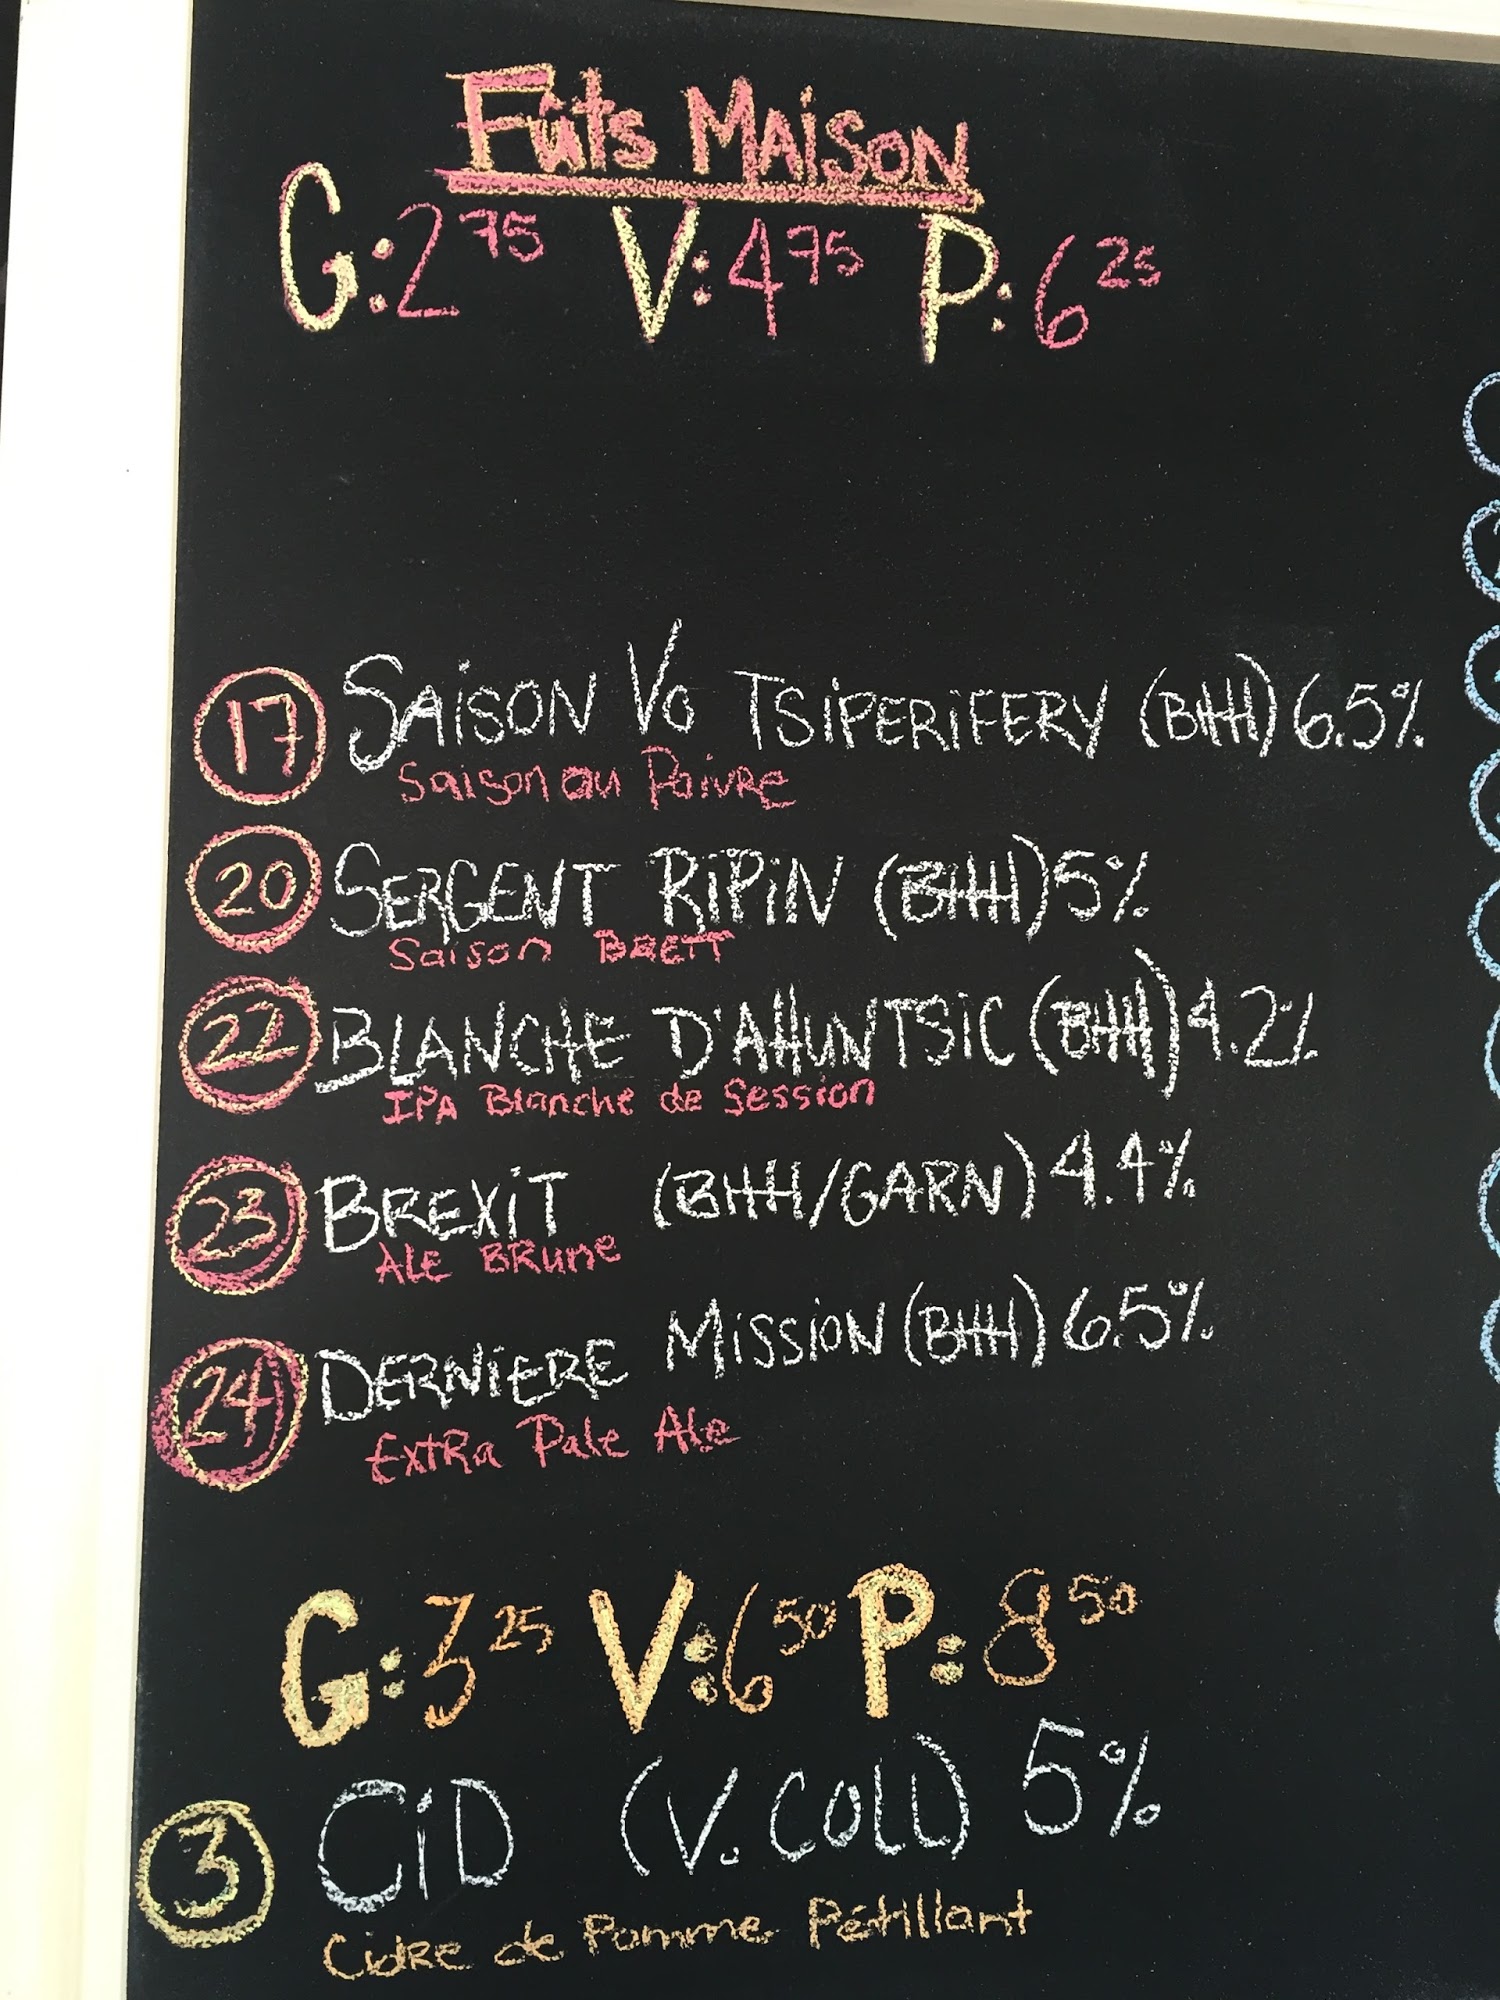 Fûts MAISON
G:2 75 V:4 75 P:6 25
17 SAISON VO TSIPERIFERY (BHH) 6.5%
Saison au Poivre
20 SERGENT RIPIN (BHH) 5%
Saison BRETT
22 BLANCHE D'AHUNTSIC (BHH) 4.2%
IPA Blanche de Session
23 BREXIT (BHH/GARN) 4.4%
ALE BRune
24 DERNIERE MISSION (BHH) 6.5%
ExtRa Pale Ale
G:3 25 V:6 50 P:8 50
3 CID (V. COLL) 5%
CidRe de Pomme Pétillant